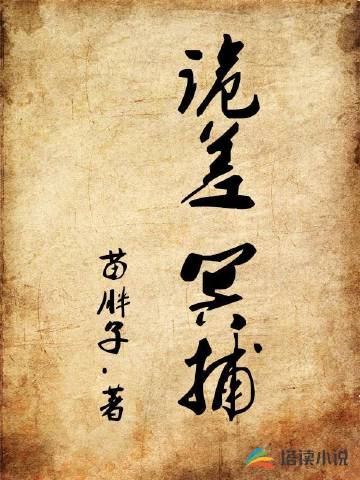 诡差
冥捕
苗胖子·著
塔读小说